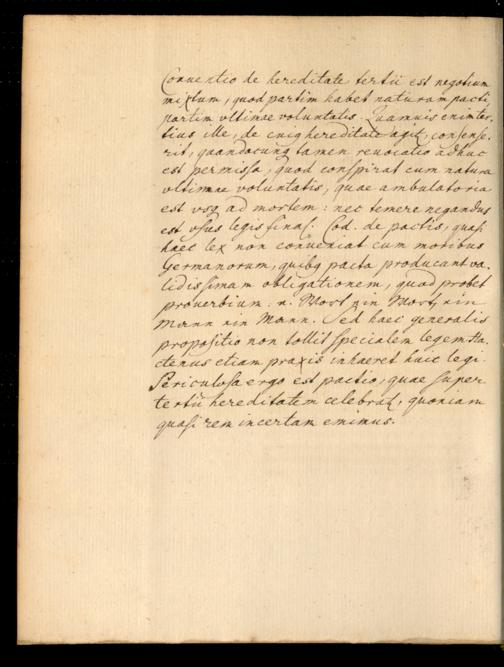 Conventio de hereditate tertii est negotium
mixtum, quod partim habet naturam pacti,
partim vltimae voluntatis. Quamuis enim ter-
tius ille, de cuiq hereditate agit, consense-
rit, quandocunq tamen reuocatio adhuc
est permissa, quod conspirat cum natura
vltimae voluntatis, quae ambulatoria
est vsq ad mortem: nec temere negandus
est vsus legis final: Cod. de pactis, quasi
haec lex non conveniat cum moribus
Germanorum, quibq pacta producunt va-
lidissimam obligationem, quod probet
proverbium: n. Wort ein Wort, ein
Mann ein Mann. Sed haec generalis
propositio non tollit specialem legem Ha-
ctenus etiam praxis inhaeret huic legi.
Periculosa ergo est pactio, quae super
tertii hereditatem celebrat, quoniam
quasi rem incertam emimus.